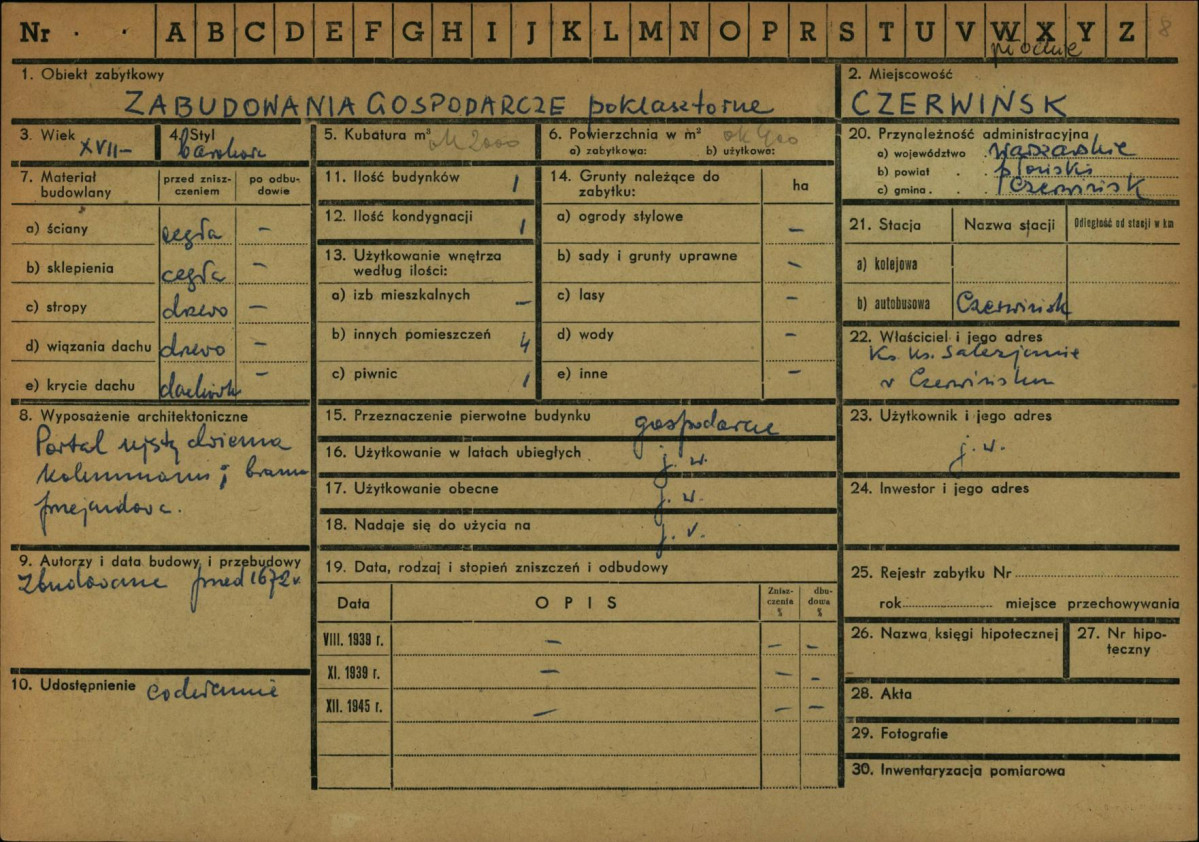 Nr . . A B C D E F G H I J K L M N O P R S T U V W X Y Z 8
płockie
1. Obiekt zabytkowy
ZABUDOWANIA GOSPODARCZE poklasztorne
2. Miejscowość
CZERWIŃSK
3. Wiek XVII–
4. Styl barokow
5. Kubatura m³ ok 2000
6. Powierzchnia w m² ok 400
a) zabytkowa: b) użytkowa:
20. Przynależność administracyjna
a) województwo . warszawskie
b) powiat . . płoński
c) gmina . . Czerwińsk
7. Materiał budowlany
przed znisz-
czeniem
po odbu-
dowie
a) ściany cegła –
b) sklepienia cegła –
c) stropy drzewo –
d) wiązania dachu drzewo –
e) krycie dachu dachówk –
11. Ilość budynków 1
12. Ilość kondygnacji 1
13. Użytkowanie wnętrza
według ilości:
a) izb mieszkalnych –
b) innych pomieszczeń 4
c) piwnic 1
14. Grunty należące do
zabytku: ha
a) ogrody stylowe –
b) sady i grunty uprawne –
c) lasy –
d) wody –
e) inne –
21. Stacja Nazwa stacji Odległość od stacji w km
a) kolejowa
b) autobusowa Czerwińsk
22. Właściciel i jego adres
Ks. Ks. Salezjanie
w Czerwińsku
8. Wyposażenie architektoniczne
Portal ujęty dwiema
kolumnami; brama
przejazdowa.
15. Przeznaczenie pierwotne budynku gospodarcze
16. Użytkowanie w latach ubiegłych j. w.
17. Użytkowanie obecne j. w.
18. Nadaje się do użycia na j. w.
23. Użytkownik i jego adres
j. w.
24. Inwestor i jego adres
9. Autorzy i data budowy i przebudowy
Zbudowane przed 1672 r.
10. Udostępnienie codziennie
19. Data, rodzaj i stopień zniszczeń i odbudowy
Data OPIS
Znisz-
czenia
%
dbu-
dowa
%
VIII. 1939 r. – – –
XI. 1939 r. – – –
XII. 1945 r. – – –
25. Rejestr zabytku Nr
rok miejsce przechowywania
26. Nazwa księgi hipotecznej
27. Nr hipo-
teczny
28. Akta
29. Fotografie
30. Inwentaryzacja pomiarowa